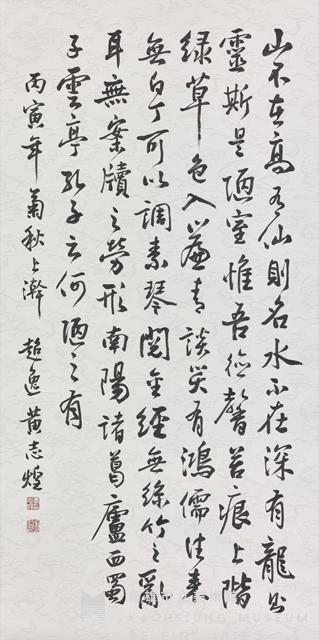 山不在高有仙則名水不在深有龍則
靈斯是陋室惟吾德馨苔痕上階
綠草色入簾青談笑有鴻儒往來
無白丁可以調素琴閱金經無絲竹之亂
耳無案牘之勞形南陽諸葛廬西蜀
子雲亭孔子云何陋之有
丙寅年菊秋上澣 超逸黃志煌
KAOHSIUNG MUSEUM